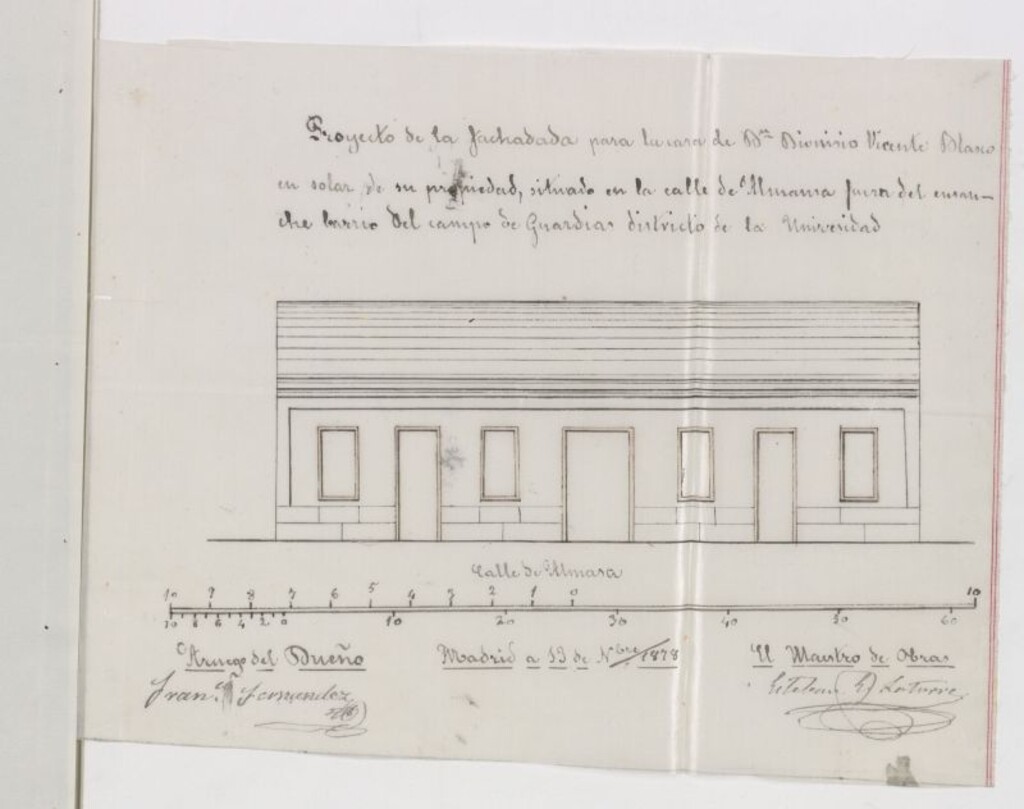 Proyecto de la fachadada para la casa de Dn Dionisio Vicente Blasco
en solar de su propiedad, situado en la calle de Almansa fuera del ensan-
che barrio del campo de Guardias districto de la Universidad
Calle de Almasa
10 9 8 7 6 5 4 3 2 1 0 10
10 8 6 4 2 0 10 20 30 40 50 60
A ruego del Dueño Madrid a 13 de Nbre 1878 El Maestro de Obras
Fran.co Fernandez Esteban Latorre